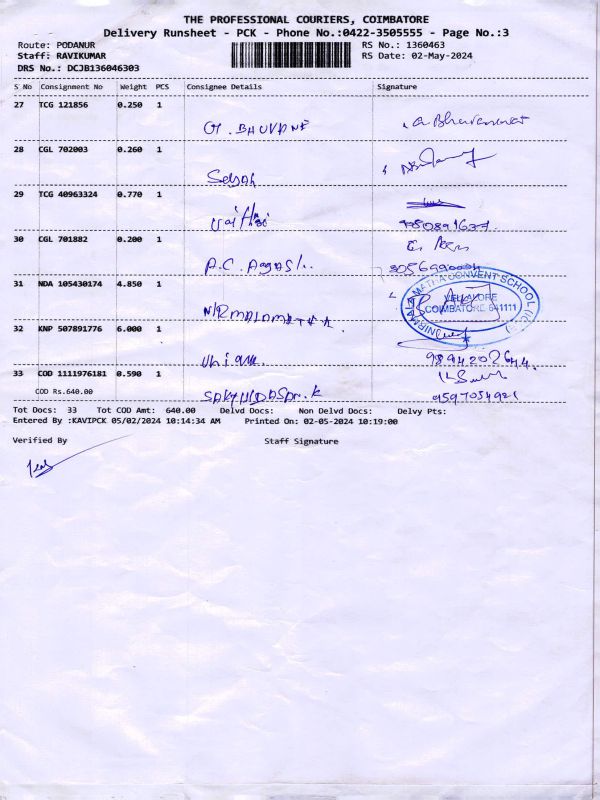 THE PROFESSIONAL COURIERS, COIMBATORE
Delivery Runsheet - PCK - Phone No.:0422-3505555 - Page No.:3
Route: PODANUR RS No.: 1360463
Staff: RAVIKUMAR RS Date: 02-May-2024
DRS No.: DCJB136046303
S No Consignment No Weight PCS Consignee Details Signature
27 TCG 121856 0.250 1
G. BHUVANE
28 CGL 702003 0.260 1
29 TCG 40963324 0.770 1
30 CGL 701882 0.200 1
P.C.
31 NDA 105430174 4.850 1
NIRMALAMATHA
MATHA CONVENT SCHOOL
VELLALORE
COIMBATORE 641111
32 KNP 507891776 6.000 1
9894202644
33 COD 1111976181 0.590 1
COD Rs.640.00 9597054921
Tot Docs: 33 Tot COD Amt: 640.00 Delvd Docs: Non Delvd Docs: Delvy Pts:
Entered By :KAVIPCK 05/02/2024 10:14:34 AM Printed On: 02-05-2024 10:19:00
Verified By Staff Signature